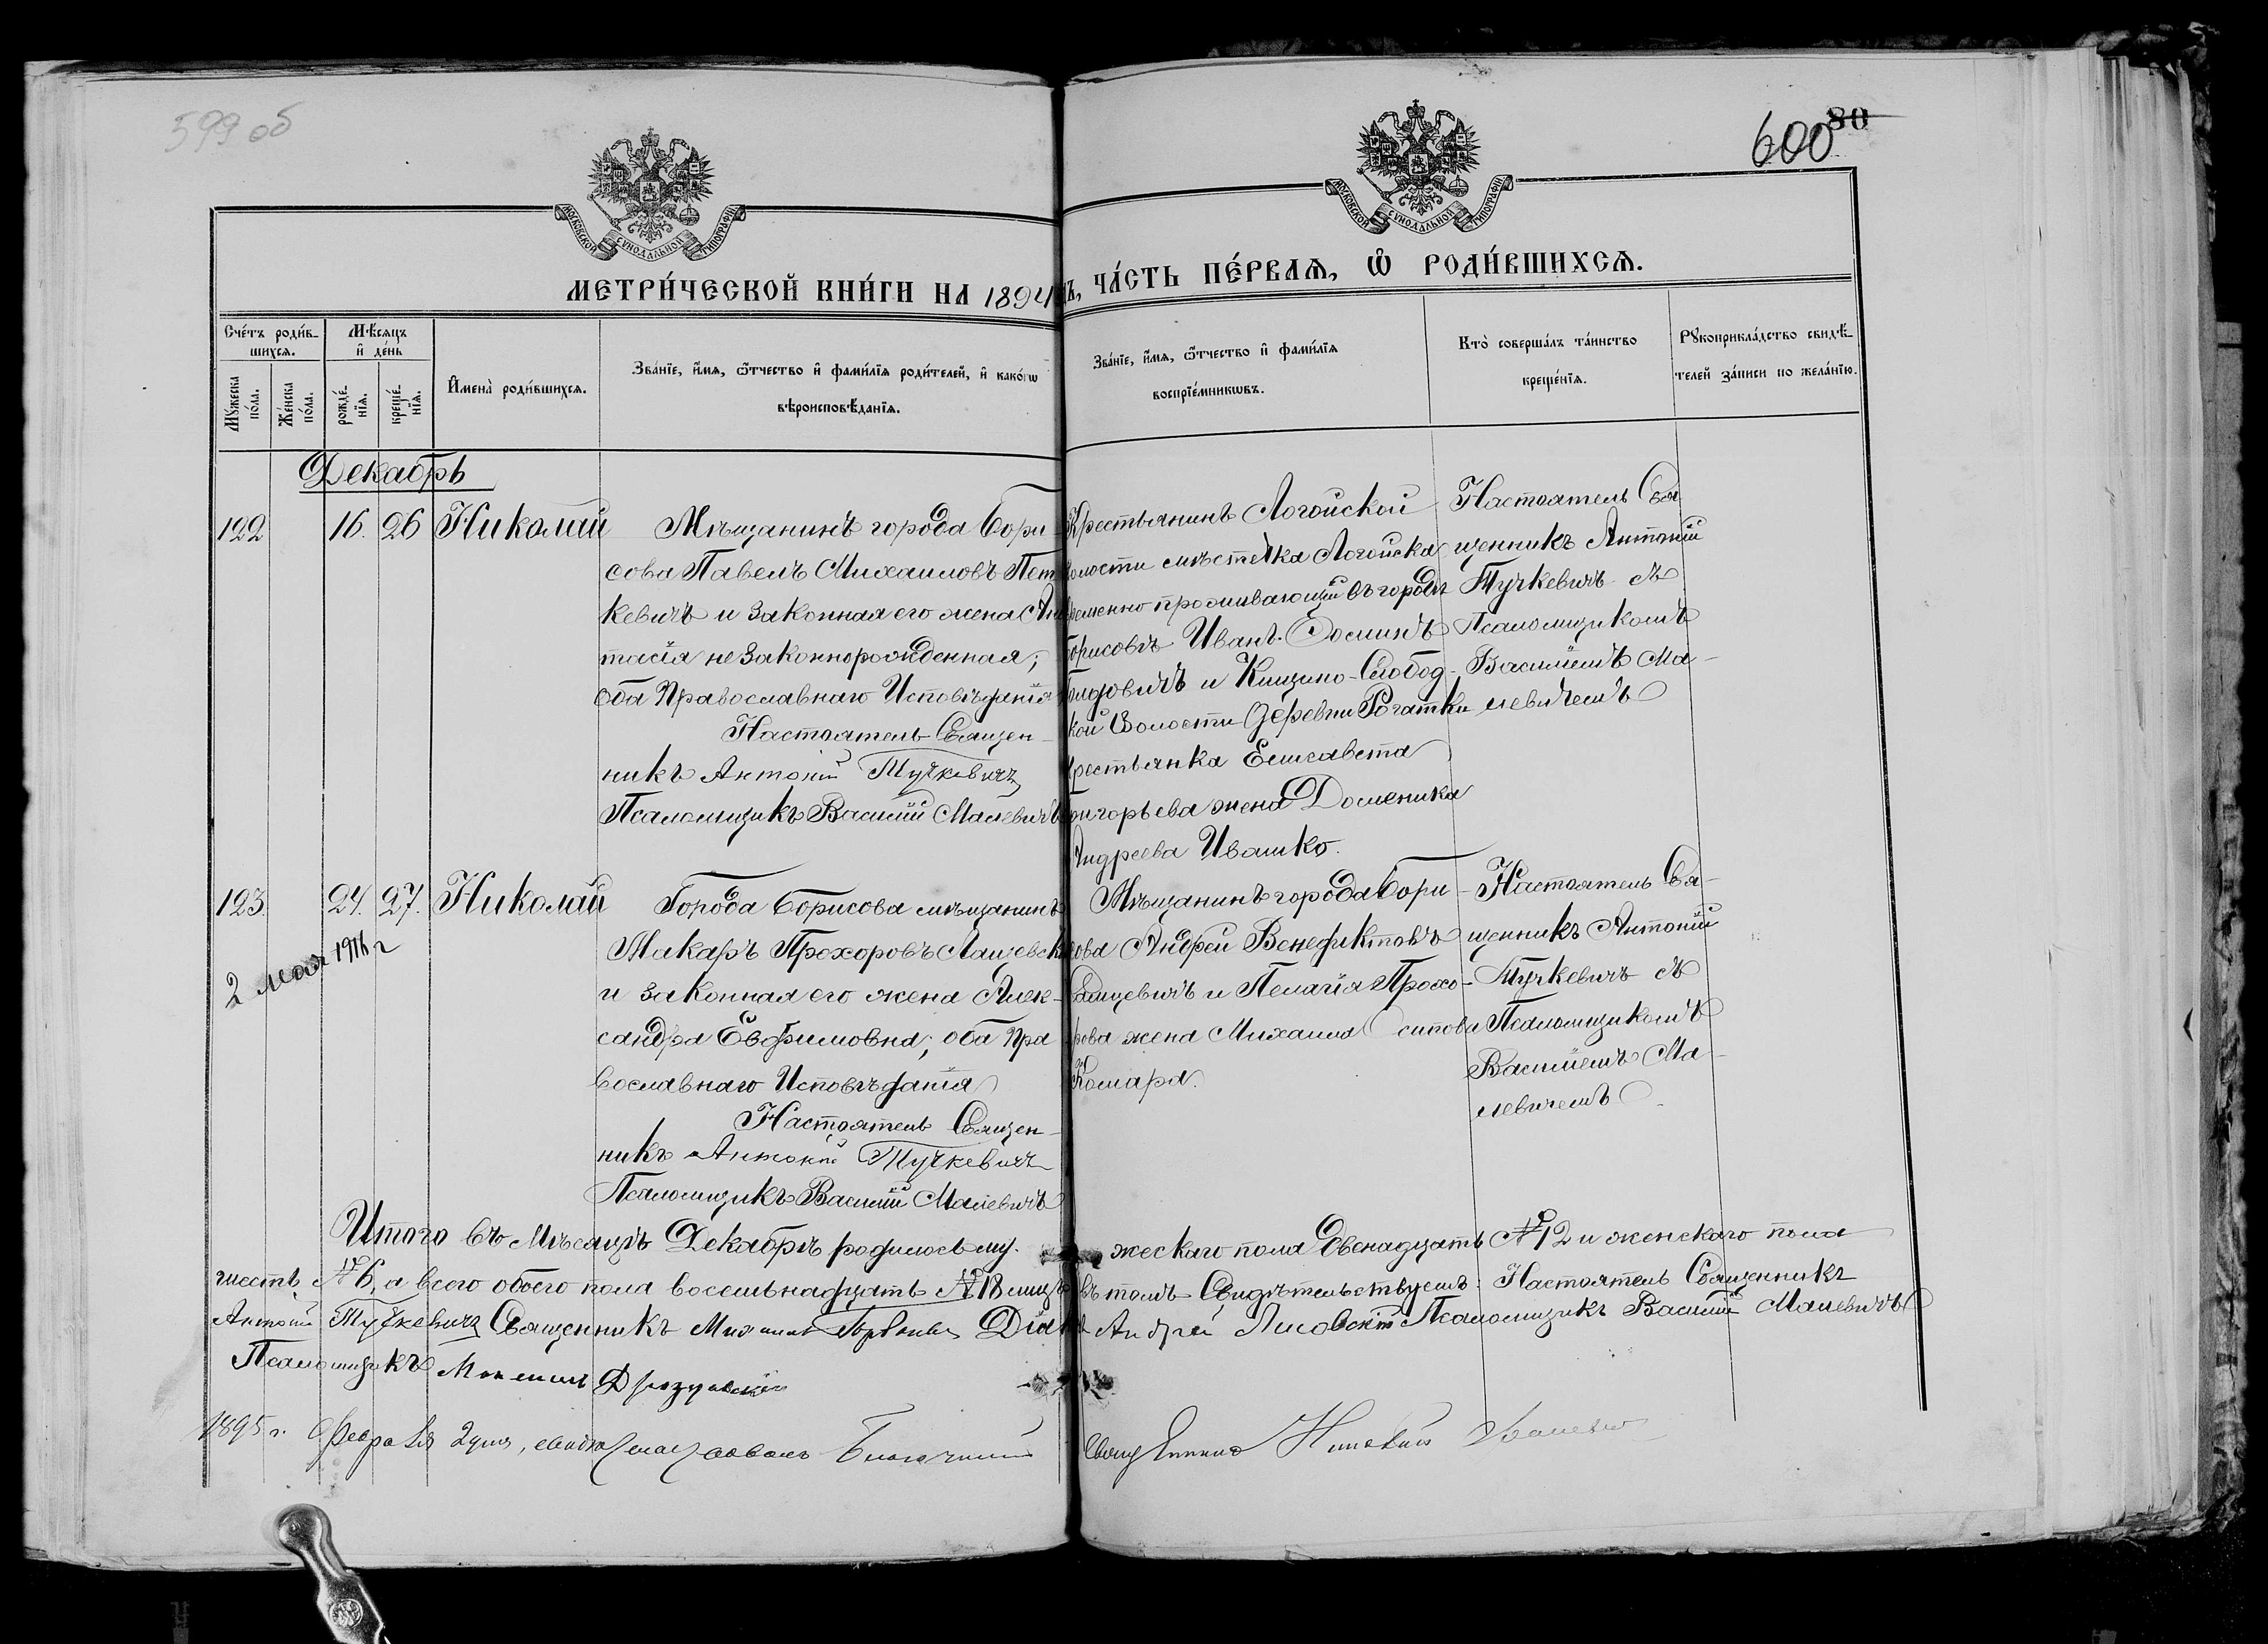 599 об
600
80
МОСКОВСКОЙ СѴНОДАЛЬНОЙ ТИПОГРАФІИ
МОСКОВСКОЙ СѴНОДАЛЬНОЙ ТИПОГРАФІИ
МЕТРИ́ЧЕСКОЙ КНИ́ГИ НА 1894
ЧА́СТЬ ПЕ́РВАѦ, Ѽ РОДИ́ВШИХСѦ.
Сче́тъ роди́в-
шихсѧ.
Мѣ́сѧцъ
и҆ де́нь
Мꙋ́жеска
по́ла.
Же́нска
по́ла.
рожде́-
нїѧ.
креще́-
нїѧ.
И҆мена̀ роди́вшихсѧ.
Зва́нїе, и҆́мѧ, ѻ҆́тчество и҆ фами́лїѧ роди́телей, и҆ како́гѡ
вѣроисповѣ́данїѧ.
Зва́нїе, и҆́мѧ, ѻ҆́тчество и҆ фами́лїѧ
воспрїе́мникѡвъ.
Кто̀ соверша́лъ та́инство
креще́нїѧ.
Рꙋкоприкла́дство свидѣ́-
телей за́писи по жела́нїю.
Декабрь
122
16.
26
Николай
Мѣщанинъ города Бори-
сова Павелъ Михаиловъ Пет
кевичъ и законная его жена
тасія незаконнорожденная;
оба Православнаго Исповѣданія
Настоятель Священ-
никъ Антоній Тучкевичъ
Псаломщикъ Василій Малевичъ
Крестьянинъ Логойской
волости мѣстечка Логойска
временно проживающій въ городѣ
Борисовѣ Иванъ
и Кищино-Слобод-
кой Волости деревни Рогатки
крестьянка Елисавета
Григорьева жена Доменика
Андреева Ивашко.
Настоятель Свя
щенникъ Антоній
Тучкевичъ съ
Псаломщикомъ
Василіемъ Ма-
левичемъ
123.
24.
27.
Николай
2 мая 1916 г
Города Борисова мѣщанинъ
Макаръ Прохоровъ Лащевск
и законная его жена Алек-
сандра Евфимовна; оба Пра
вославнаго Исповѣданія
Настоятель Священ-
никъ Антоній Тучкевичъ
Псаломщикъ Василій Малевичъ
Мѣщанинъ города Бори-
сова Андрей Венедиктовъ
и Пелагія Прохо-
рова жена Михаила Осипова
Комара.
Настоятель Свя-
щенникъ Антоній
Тучкевичъ съ
Псаломщикомъ
Василіемъ Ма-
левичемъ
Итого въ Мѣсяцѣ Декабрѣ родилось му- жескаго пола двенадцать №12 и женскаго пола
шесть №6, а всего обоего пола восемьнадцать №18 лицъ въ томъ Свидѣтельствуемъ: Настоятель Священникъ
Антоній Тучкевичъ Священникъ Михаилъ Діаконъ Андрей Лисовскій Псаломщикъ Василій Малевичъ
Псаломщикъ
1895 г. Февраля 2 дня, Благочинный
Священникъ